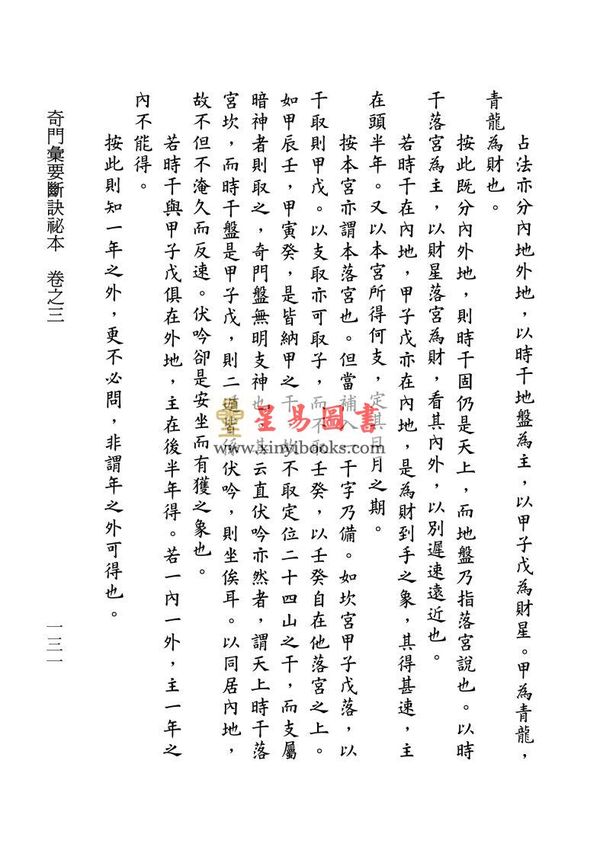 占法亦分內地外地，以時干地盤為主，以甲子戊為財星。甲為青龍，
青龍為財也。
按此既分內外地，則時干固仍是天上，而地盤乃指落宮說也。以時
干落宮為主，以財星落宮為財，看其內外，以別遲速遠近也。
若時干在內地，甲子戊亦在內地，是為財到手之象，其得甚速，主
在頭半年。又以本宮所得何支，定其日月之期。
按本宮亦謂本落宮也。但當補入一干字乃備。如坎宮甲子戊落，以
干取則甲戊。以支取亦可取子，而不取壬癸，以壬癸自在他落宮之上。
如甲辰壬，甲寅癸，是皆納甲之干，故不取定位二十四山之干，而支屬
暗神者則取之，奇門盤無明支神也。其云直伏吟亦然者，謂天上時干落
宮坎，而時干盤是甲子戊，則二遁皆係伏吟，則坐俟耳。以同居內地，
故不但不淹久而反速。伏吟卻是安坐而有獲之象也。
若時干與甲子戊俱在外地，主在後半年得。若一內一外，主一年之
內不能得。
按此則知一年之外，更不必問，非謂年之外可得也。
奇門彙要斷訣祕本　卷之三
一三一
呈易圖書
www.xinyibooks.com